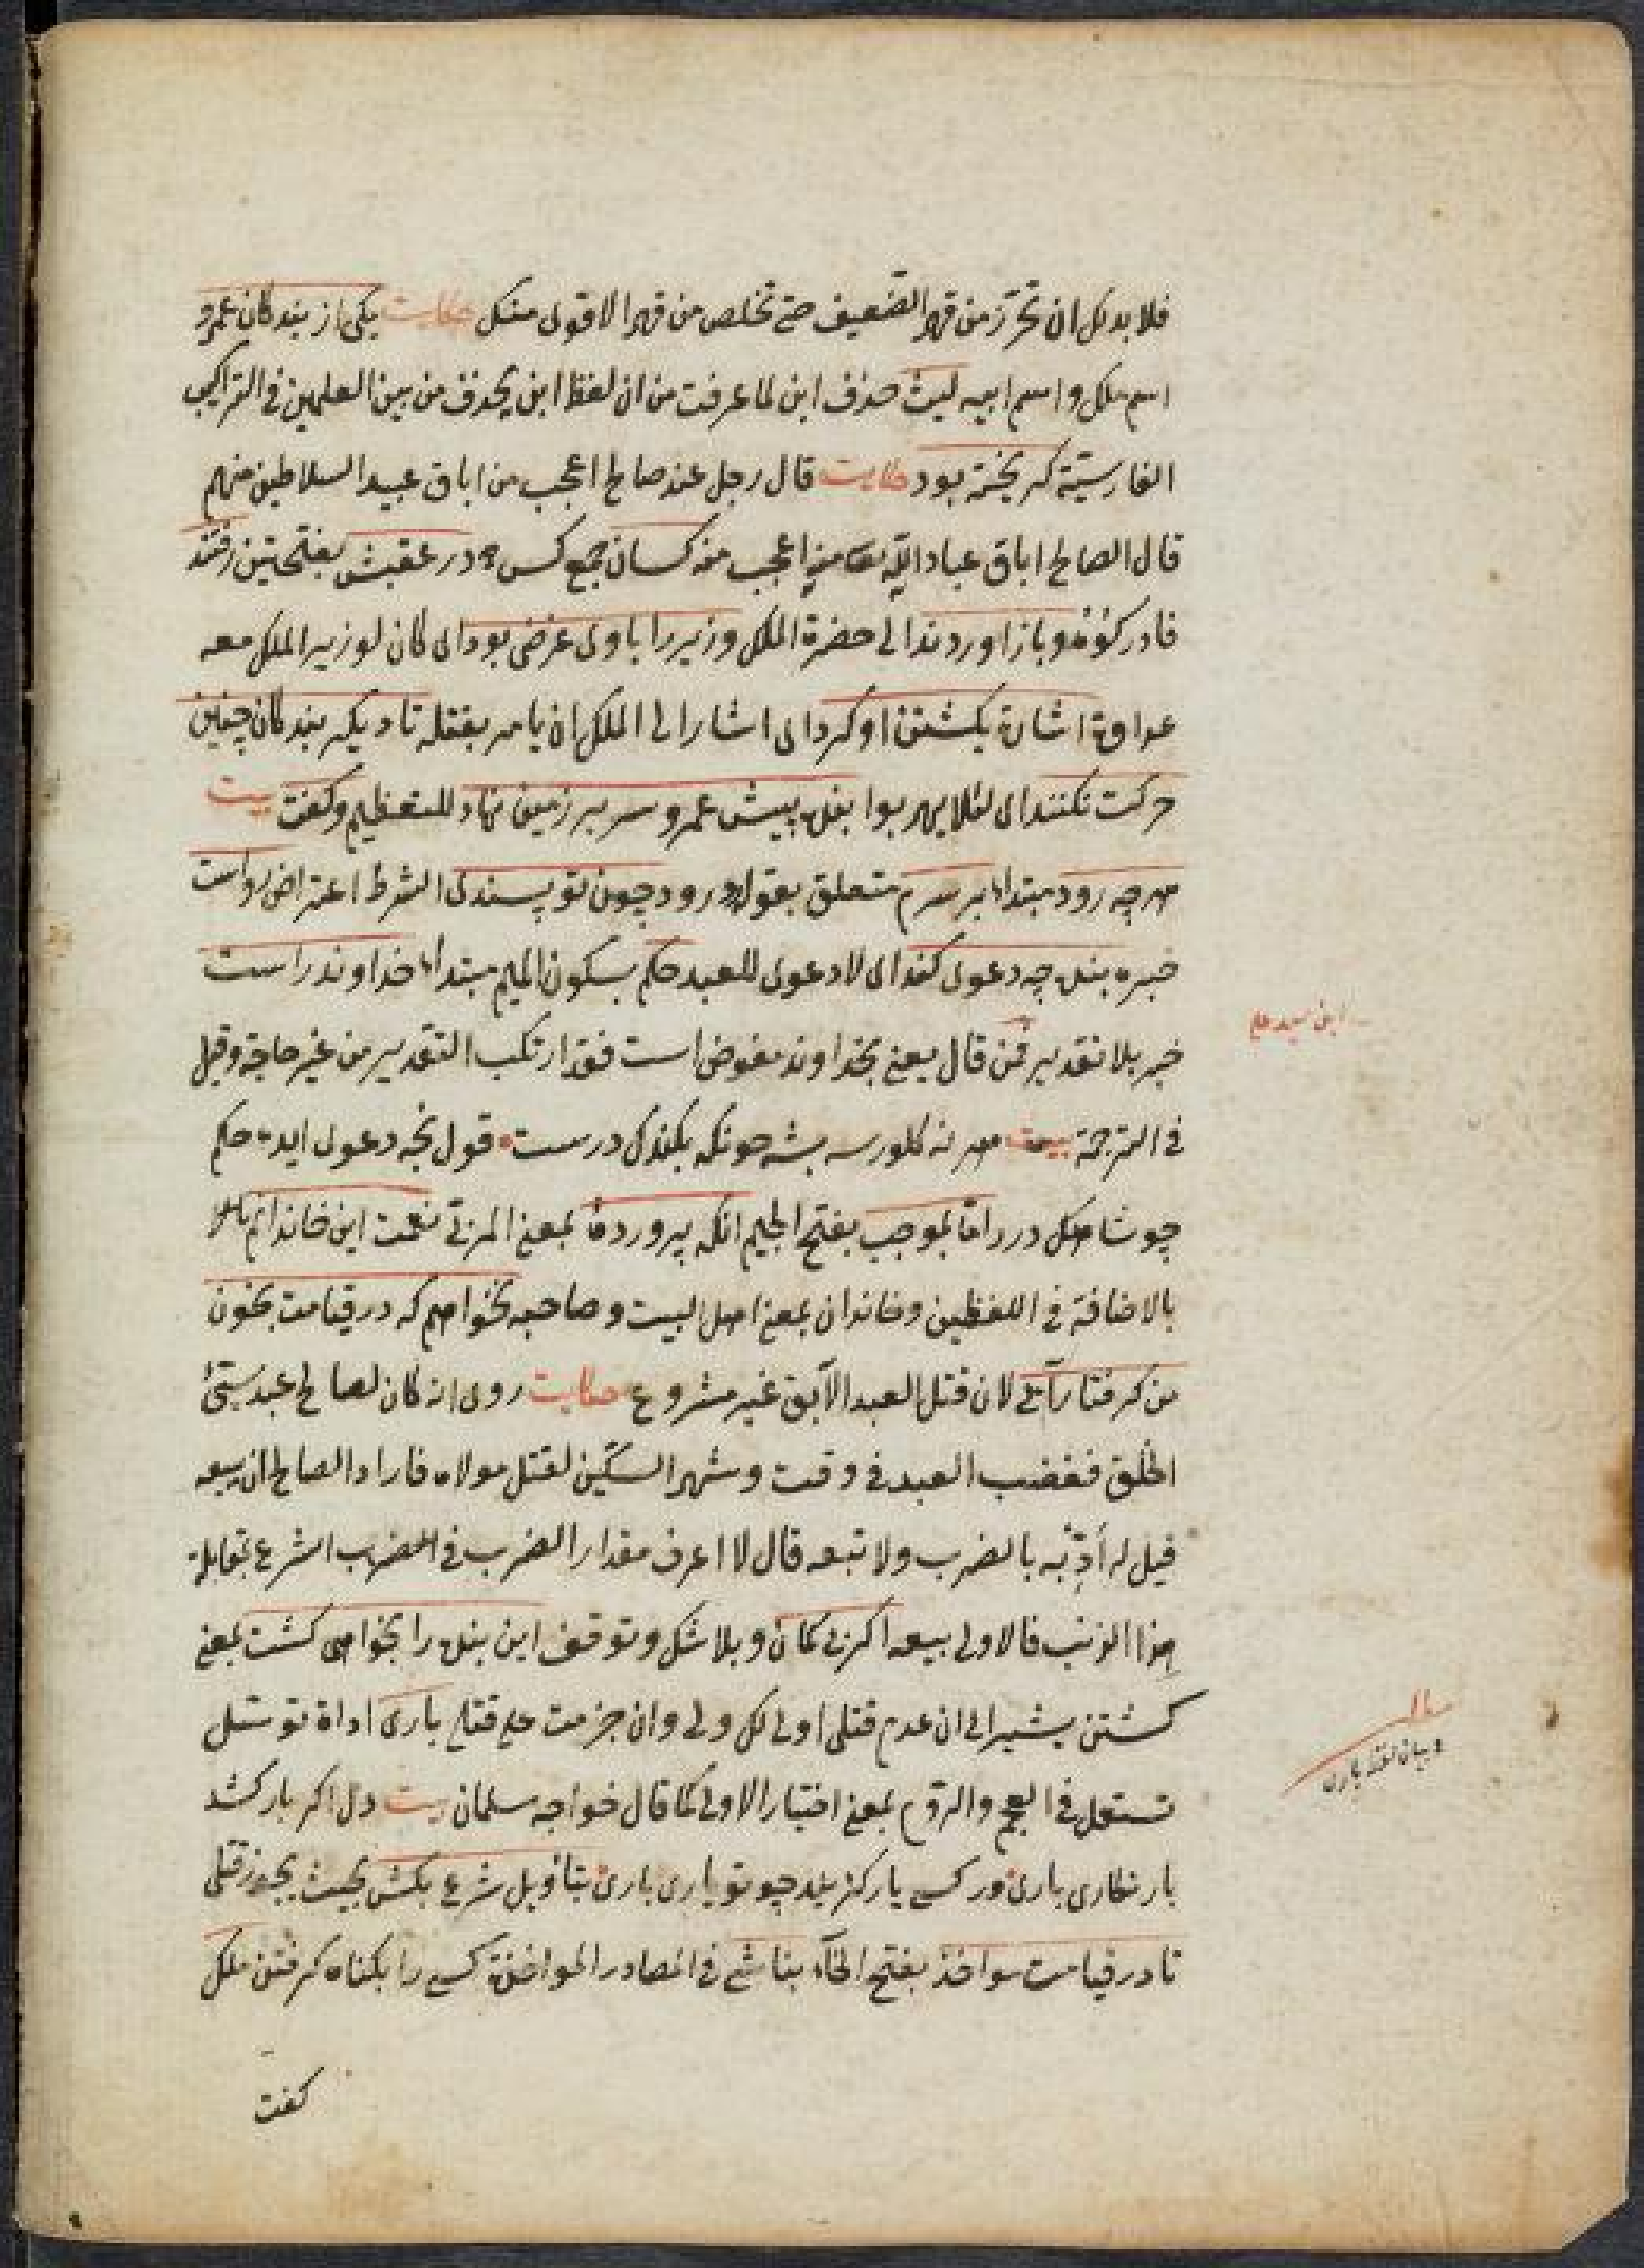 فلا بد لك ان تحرّز من قهر الضعيف حتى تخلص من قهر الاقوى منك حكايت يكى از بندكان عمرو
اسم ملك واسم ابيه ليث حذف ابن لما عرفت من ان لفظ ابن يحذف من بين العلمين فى التراكيب
الفارسيّة كريخته بود حكايت قال رجل عند صالح اعجب من اباق عبيد السلاطين منهم
قال الصالح اباق عباد الله منه اعجب منه كسان جمع كس در عقبش بفتحتين رفتند
فادركوه وباز اوردند الى حضرة الملك وزير را با وى غرضى بود اى كان لوزير الملك معه
عداوة اشارة بكشتن او كرد اى اشار الى الملك ان يامر بقتله تا ديكر بندكان چنين
حركت نكنند اى لئلا يهربوا بنده پيش عمرو سر بر زمين نهاد للتعظيم وكفت بيت
هرچه رود مبتدا بر سرم متعلق بقوله رود چون تو پسندى الشرط اعتراض رواست
خبره بنده چه دعوى كند اى لا دعوى للعبد حكم بسكون الميم مبتدأ خداوند راست
خبر بلا تقدير فمن قال يعنى بخداوند مفوض است فقد ارتكب التقدير من غير حاجة وقيل
فى الترجمة بيت هر نه كلورسه بشه چونكه بكندك درست قول نجه دعوى ايده حكم
چو شاهك در اما بموجب بفتح الجيم انكه پرورده بمعنى المربّى نعمت اين خاندانم
بالاضافة فى اللفظين وخاندان بمعنى اهل البيت وصاحبه نخواهم كه در قيامت بخون
من كرفتار آيى لان قتل العبد الآبق غير مشروع حكايت روى انه كان لصالح عبد سيّئ
الخلق فغضب العبد فى وقت وشهر السكّين لقتل مولاه فاراد الصالح ان يبيعه
قيل له أدّبه بالضرب ولا تبعه قال لا اعرف مقدار الضرب فى الشرع بمقابلة
هذا الذنب فالاولى بيعه اكر بى كمان وبلا شك وتوقف اين بنده را بخواهى كشت بمعنى
كشتن يشير الى ان عدم قتلى اولى لك ولى وان جزمت على قتلى بارى اداة توسّل
تستعمل فى العجم والروم بمعنى اختيار الاولى كما قال خواجه سلمان بيت دل اكر بار كشد
بار نكارى بارى ور كسى يار كزيند چو تو يارى بارى بتاويل شرع بكش بحيث يجوز قتلى
تا در قيامت مواخذ بفتح الخاء نباشى فى المصادر المواخذة كسى را بكناه كرفتن ملك
كفت
ابن سيد على
مطلب
وبيان لفظ بارى